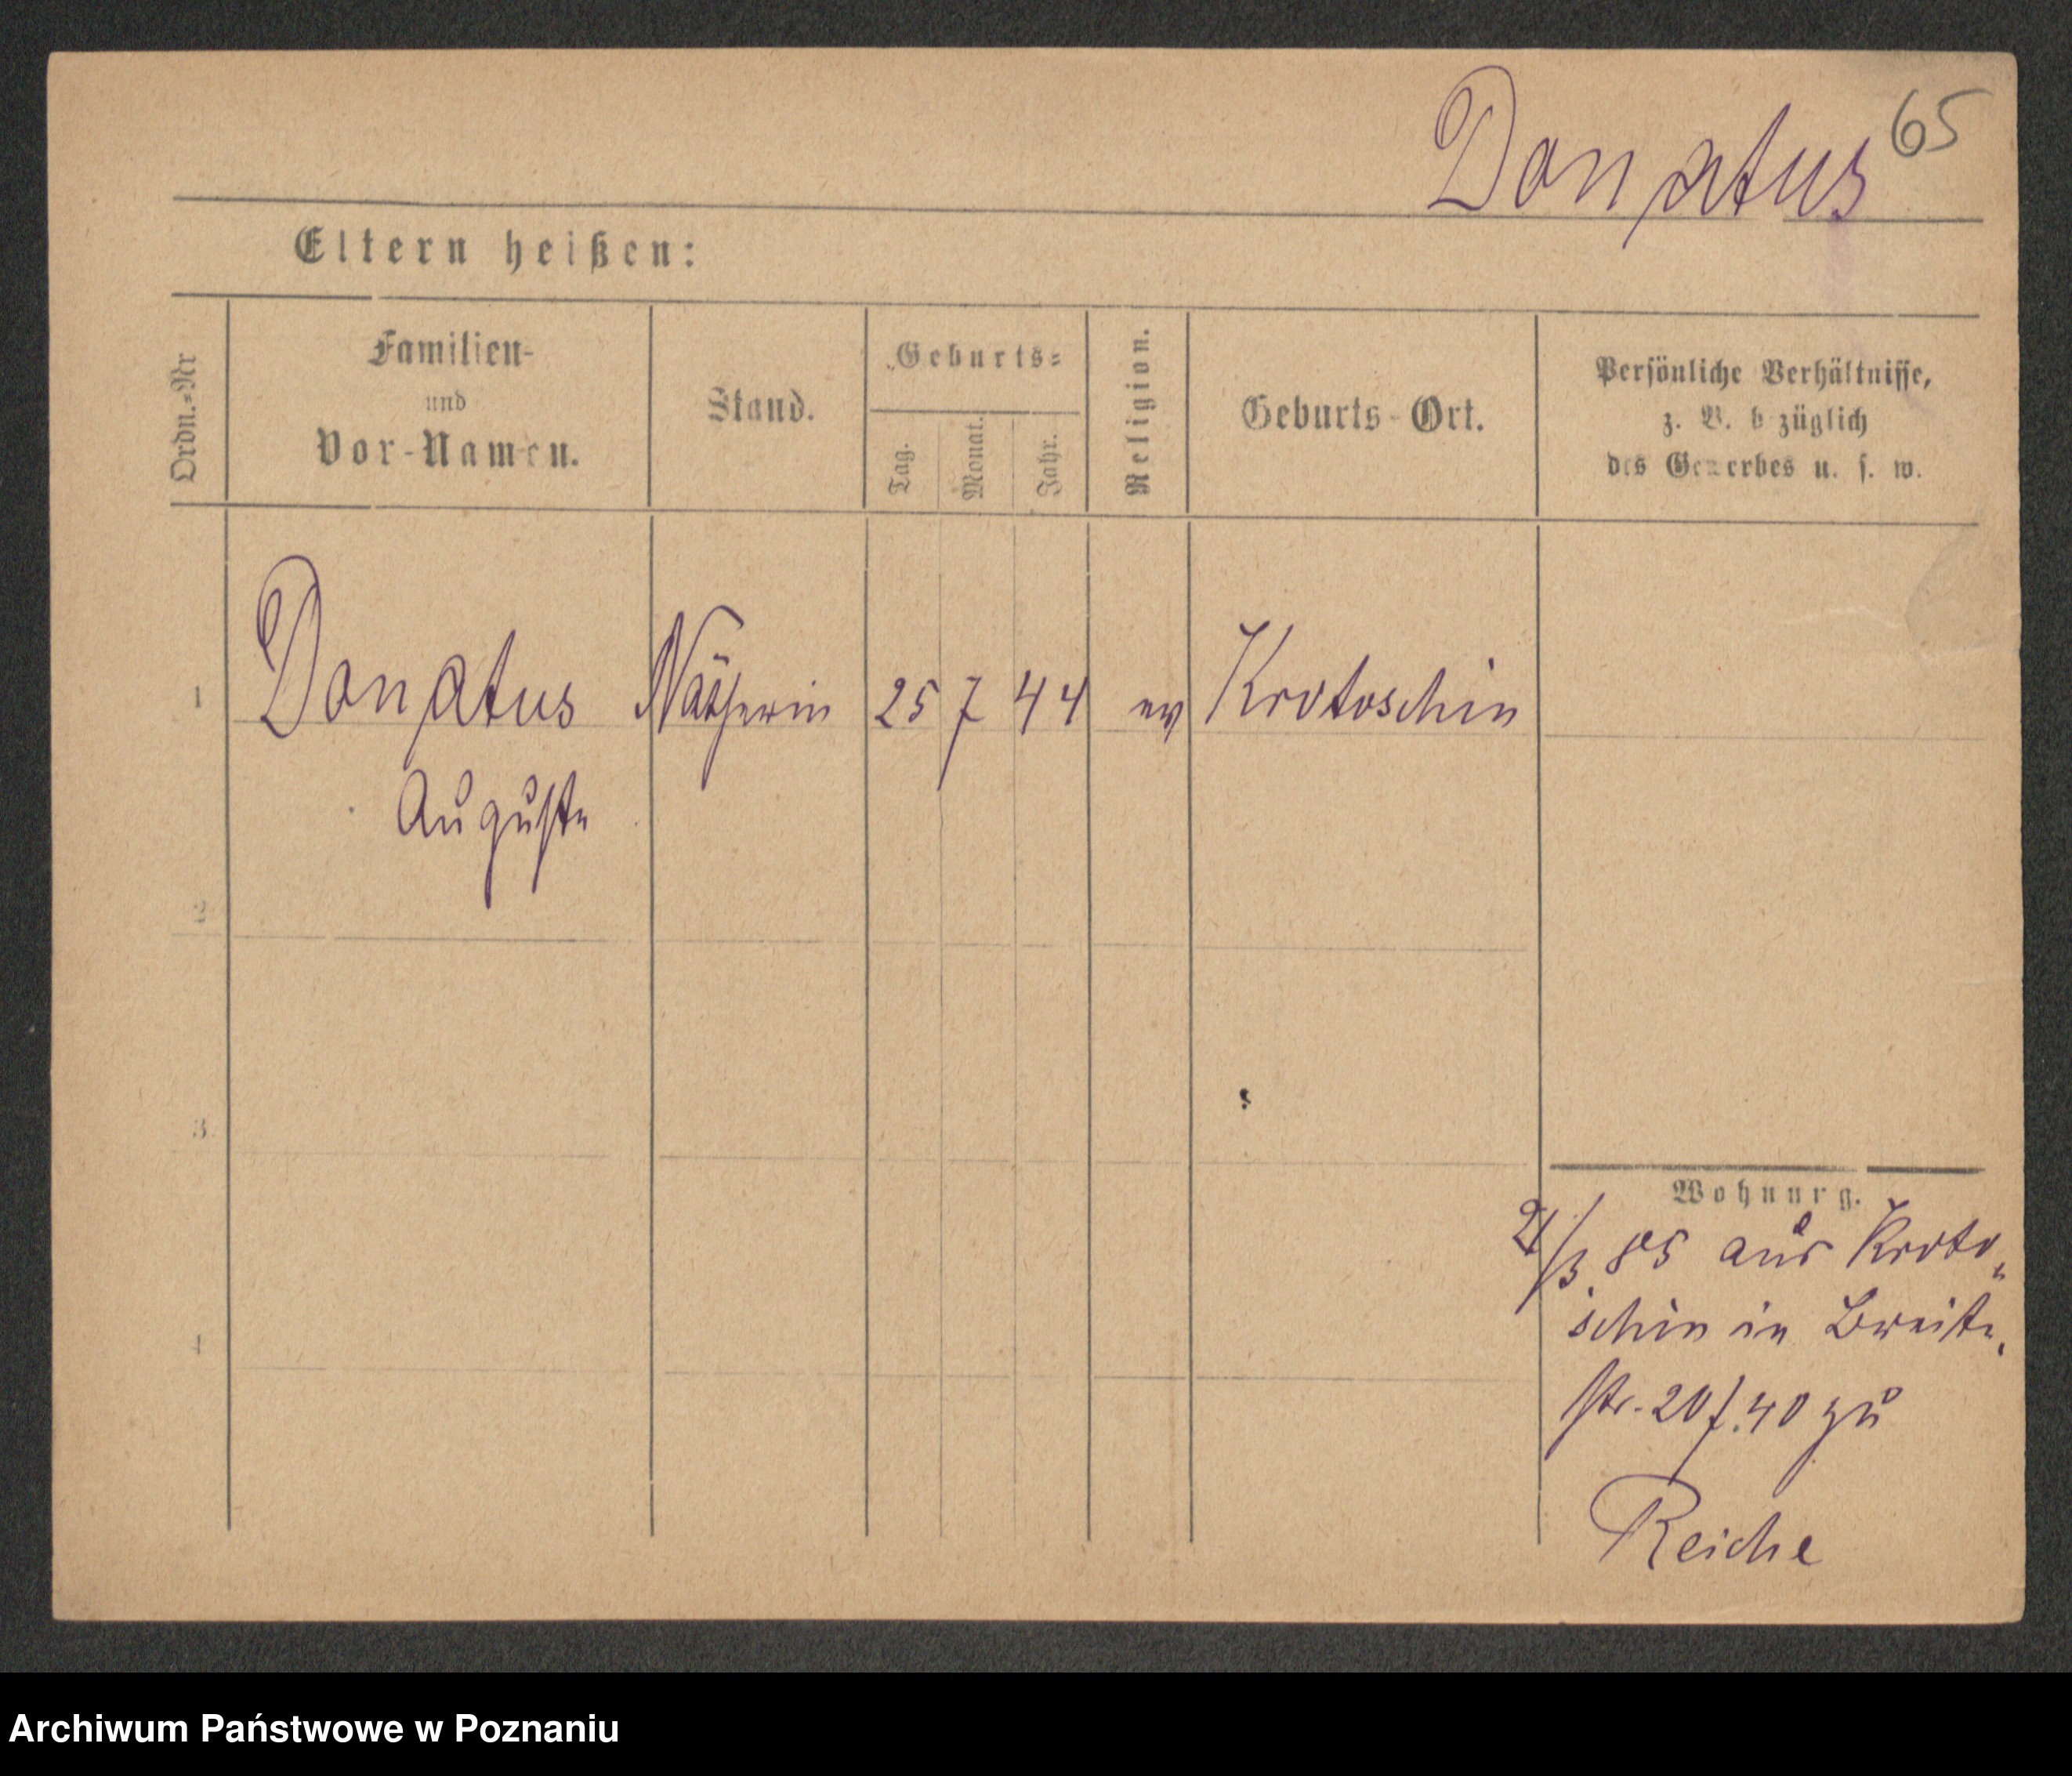 65
Donatus
Eltern heißen:
Ordn.=Nr
Familien-
und
Vor-Namen.
Stand.
Geburts=
Tag.
Monat.
Jahr.
Religion.
Geburts-Ort.
Persönliche Verhältnisse,
z. B. b züglich
des Gewerbes u. s. w.
1 Donatus Näherin 25 7 44 ev Krotoschin
Auguste
2
3.
4
Wohnung.
21/3. 85 aus Kroto„
schin in Breite„
str. 20 f. 40 zu
Reiche
Archiwum Państwowe w Poznaniu